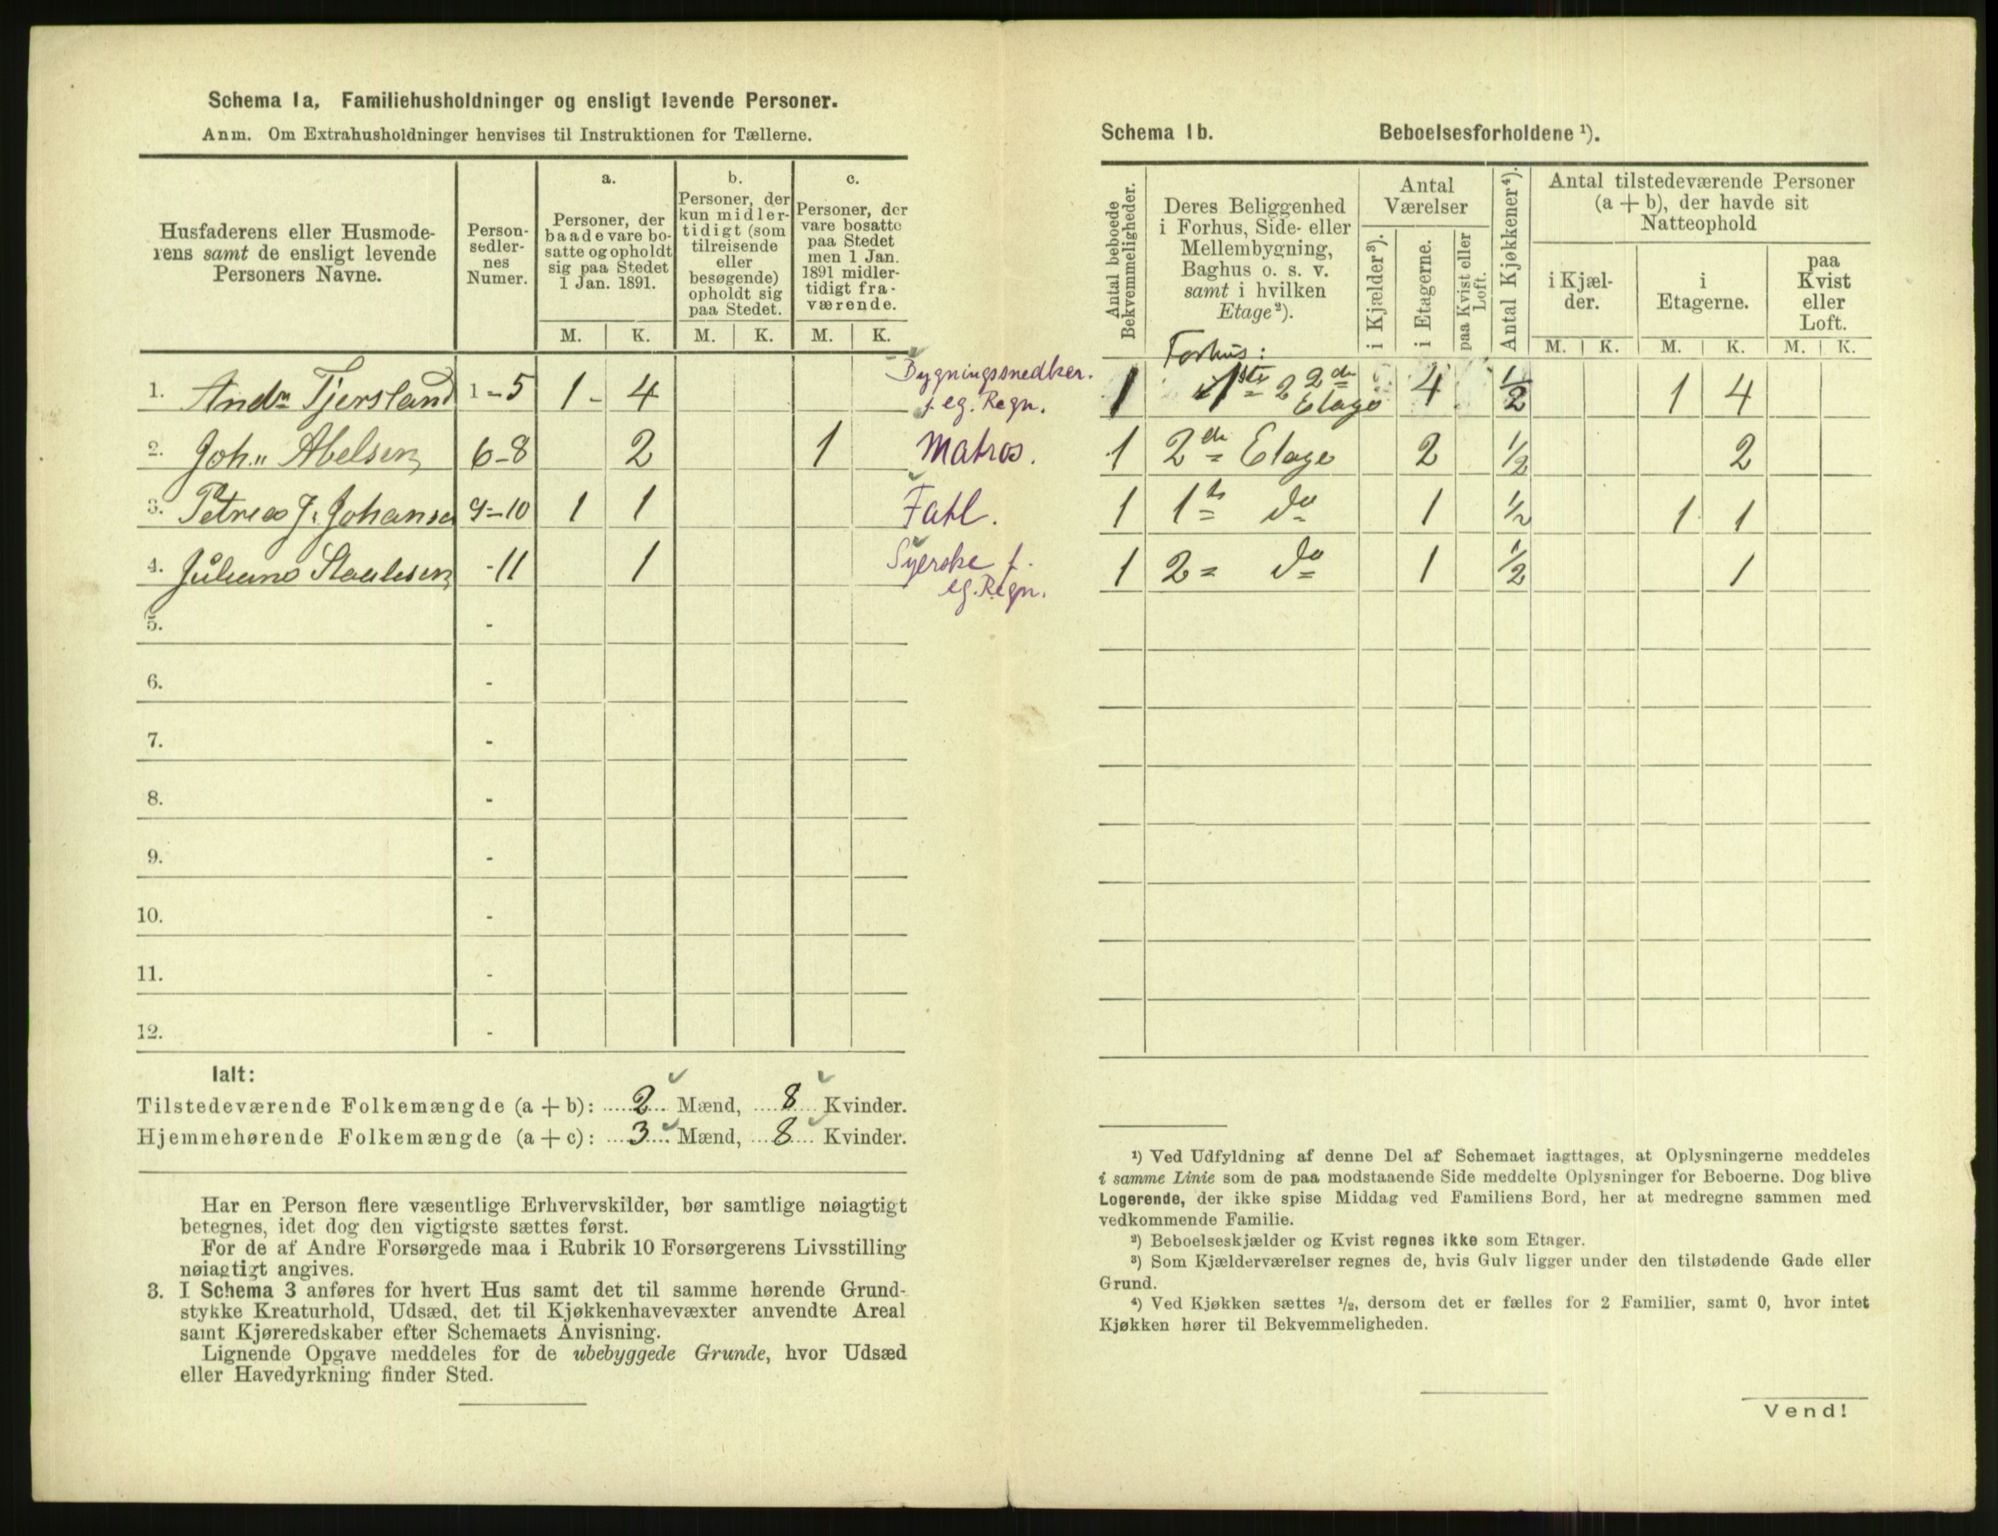 Schema 1a, Familiehusholdninger og ensligt levende Personer.
Anm. Om Extrahusholdninger henvises til Instruktionen for Tællerne.
Husfaderens eller Husmode-
rens samt de ensligt levende
Personers Navne.
Person-
sedler-
nes
Numer.
a.
Personer, der
baade vare bo-
satte og opholdt
sig paa Stedet
1 Jan. 1891.
b.
Personer, der
kun midler-
tidigt (som
tilreisende
eller
besøgende)
opholdt sig
paa Stedet.
c.
Personer, der
vare bosatte
paa Stedet
men 1 Jan.
1891 midler-
tidigt fra-
værende.
M. K. M. K. M. K.
1. Andr Tjersland 1-5 1 - 4 Bygningssnedker.
f. eg. Regn.
2. Joh." Abelsen 6-8 2 1 Matros.
3. Petrea J. Johansen 9-10 1 1 Fatl.
4. Juliane Staalesen -11 1 Syerske f.
eg. Regn.
5. -
6. -
7. -
8. -
9. -
10. -
11. -
12. -
Ialt:
Tilstedeværende Folkemængde (a + b): 2 Mænd, 8 Kvinder.
Hjemmehørende Folkemængde (a + c): 3 Mænd, 8 Kvinder.
Har en Person flere væsentlige Erhvervskilder, bør samtlige nøiagtigt
betegnes, idet dog den vigtigste sættes først.
For de af Andre Forsørgede maa i Rubrik 10 Forsørgerens Livsstilling
nøiagtigt angives.
3. I Schema 3 anføres for hvert Hus samt det til samme hørende Grund-
stykke Kreaturhold, Udsæd, det til Kjøkkenhavevæxter anvendte Areal
samt Kjøreredskaber efter Schemaets Anvisning.
Lignende Opgave meddeles for de ubebyggede Grunde, hvor Udsæd
eller Havedyrkning finder Sted.
Schema 1b. Beboelsesforholdene ¹).
Antal beboede
Bekvemmeligheder.
Deres Beliggenhed
i Forhus, Side- eller
Mellembygning,
Baghus o. s. v.
samt i hvilken
Etage²).
Antal
Værelser
i Kjælder³).
i Etagerne.
paa Kvist eller
Loft.
Antal Kjøkkener⁴).
Antal tilstedeværende Personer
(a + b), der havde sit
Natteophold
i Kjæl-
der.
i
Etagerne.
paa
Kvist
eller
Loft.
M. K. M. K. M. K.
Forhus:
1 1ste 2 2de Etage 4 ½ 1 4
1 2de Etage 2 ½ 2
1 1te do 1 ½ 1 1
1 2 do 1 ½ 1
¹) Ved Udfyldning af denne Del af Schemaet iagttages, at Oplysningerne meddeles
i samme Linie som de paa modstaaende Side meddelte Oplysninger for Beboerne. Dog blive
Logerende, der ikke spise Middag ved Familiens Bord, her at medregne sammen med
vedkommende Familie.
²) Beboelseskjælder og Kvist regnes ikke som Etager.
³) Som Kjælderværelser regnes de, hvis Gulv ligger under den tilstødende Gade eller
Grund.
⁴) Ved Kjøkken sættes ½, dersom det er fælles for 2 Familier, samt 0, hvor intet
Kjøkken hører til Bekvemmeligheden.
Vend!